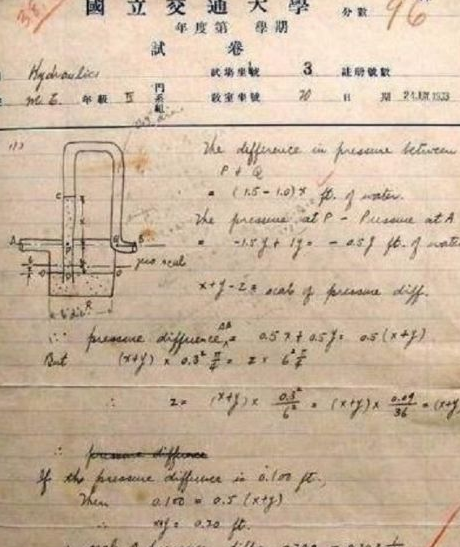 38.
國立交通大學
年度第 學期
分數 96
試卷
Hydraulics 試場坐號 3 註册號數
M.E. 年級 III 門系組 教室坐號 70 日期 24 Jun 1933
0.3" dia.
(1)
The difference in pressure between
P & Q
= (1.5 - 1.0)x ft. of water.
The pressure at P - Pressure at A
= -1.5y + 1y = -0.5y ft. of water
x+y-z = scale of pressure diff.
C
A
B
zero scale
R
6" dia
∴ pressure difference AB = 0.5x + 0.5y = 0.5(x+y)
But (x+y) × 0.3² π/4 = z × 6² π/4
∴ z = (x+y) × 0.3²/6² = (x+y) × 0.09/36 = (x+y)
∴ pressure difference
If the pressure difference is 0.100 ft.,
Then 0.100 = 0.5 (x+y)
∴ x+y = 0.20 ft.